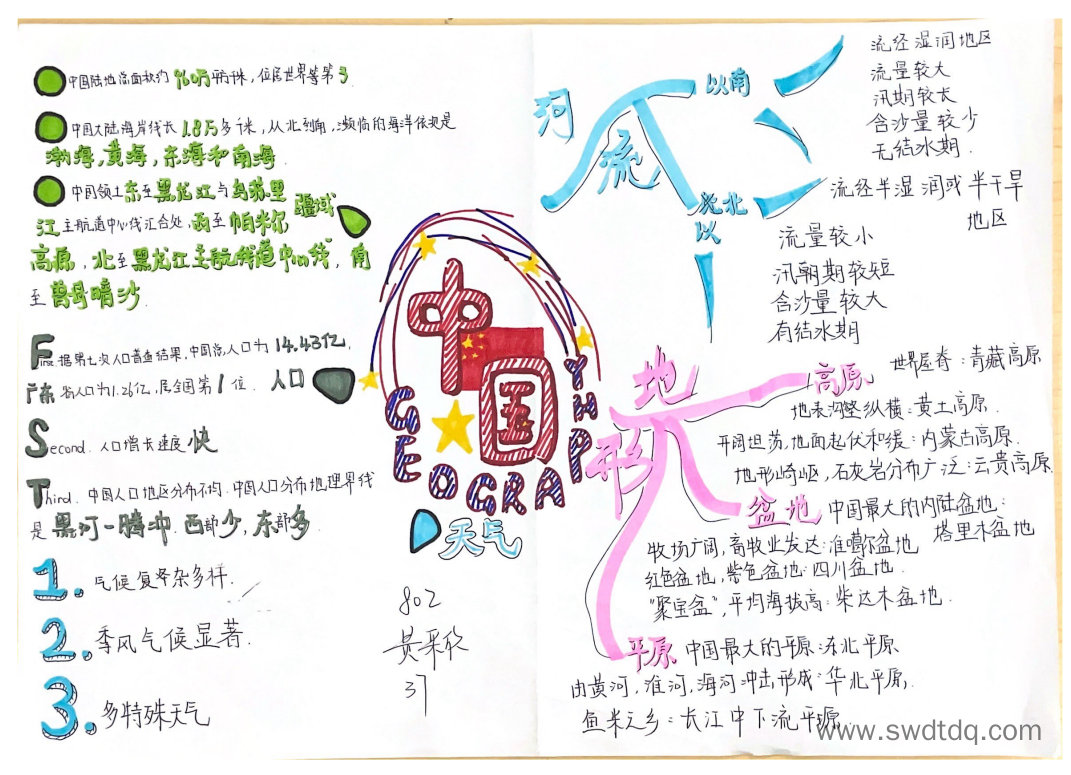 中国陆地总面积约960万平方千米，位居世界第3.
中国大陆海岸线长1.8万多千米，从北到南，濒临的海洋依次是
渤海，黄海，东海和南海.
中国领土东至黑龙江与乌苏里
江主航道中心线汇合处，西至帕米尔
高原，北至黑龙江主航线道中心线，南
至曾母暗沙.
疆域
First 据第七次人口普查结果，中国总人口为14.43亿，
广东省人口为1.26亿，居全国第1位.
人口
Second. 人口增长速度快
Third. 中国人口地区分布不均. 中国人口分布地理界线
是黑河—腾冲. 西部少，东部多
1. 气候复杂多样.
2. 季风气候显著.
3. 多特殊天气
中国
GEOGRAPHY
天气
802
37
河流
以南
流经湿润地区
流量较大
汛期较长
含沙量较少
无结冰期.
以北
流经半湿润或半干旱
地区
流量较小
汛期较短
含沙量较大
有结冰期
地形
高原
世界屋脊：青藏高原
地表沟壑纵横：黄土高原.
开阔坦荡，地面起伏和缓：内蒙古高原.
地形崎岖，石灰岩分布广泛：云贵高原
盆地
中国最大的内陆盆地：
塔里木盆地
牧场广阔，畜牧业发达：准噶尔盆地
红色盆地，紫色盆地：四川盆地.
“聚宝盆”，平均海拔高：柴达木盆地.
平原
中国最大的平原：东北平原
由黄河，淮河，海河冲击形成：华北平原，
鱼米之乡：长江中下流平原.
www.swdtdq.com